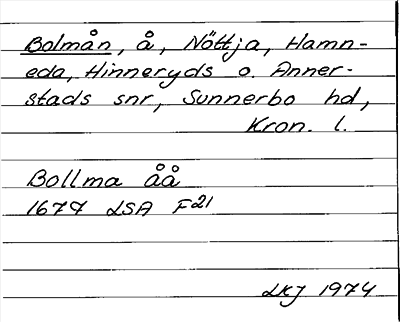 Bolmån, å, Nöttja, Hamn-
eda, Hinneryds o. Anner-
stads snr, Sunnerbo hd,
Kron. l.
Bollma åå
1679 LSA F21
LKJ 1974